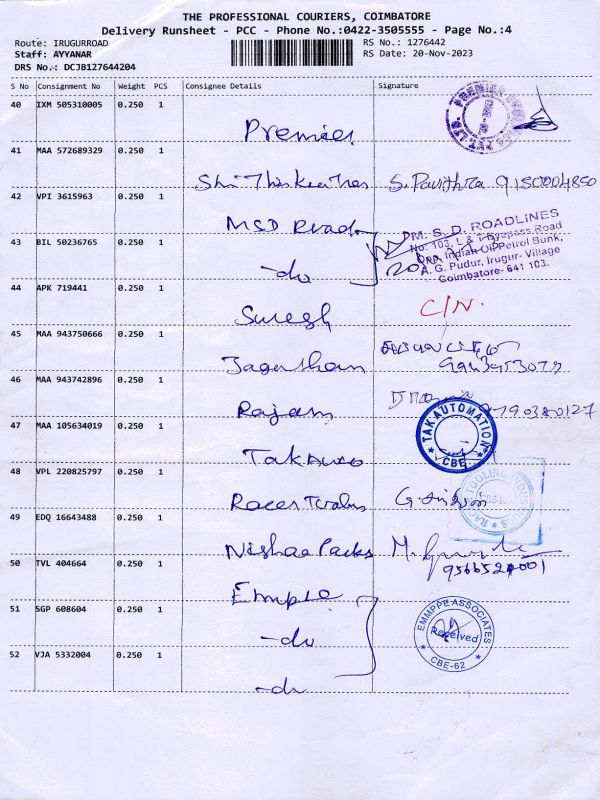 THE PROFESSIONAL COURIERS, COIMBATORE
Delivery Runsheet - PCC - Phone No.:0422-3505555 - Page No.:4
Route: IRUGURROAD
RS No.: 1276442
Staff: AYYANAR
RS Date: 20-Nov-2023
DRS No.: DCJB127644204
S No Consignment No Weight PCS Consignee Details Signature
40 IXM 505310005 0.250 1
Premier
41 MAA 572689329 0.250 1
S. Pavithra 9150004850
42 VPI 3615963 0.250 1
MSD Road
M. S. D. ROADLINES
No. 103, L & T Byepass Road
Opp. Indian Oil Petrol Bunk,
A. G. Pudur, Irugur- Village
Coimbatore- 641 103.
43 BIL 50236765 0.250 1
-do
44 APK 719441 0.250 1
Suresh
C/N.
45 MAA 943750666 0.250 1
46 MAA 943742896 0.250 1
Rajam
47 MAA 105634019 0.250 1
Takauto
TAKAUTOMATION
CBE
48 VPL 220825797 0.250 1
49 EDQ 16643488 0.250 1
Nishaa Packs
50 TVL 404664 0.250 1
51 SGP 608604 0.250 1
-do
EMMPPE ASSOCIATES
Received
CBE-62
52 VJA 5332004 0.250 1
-do